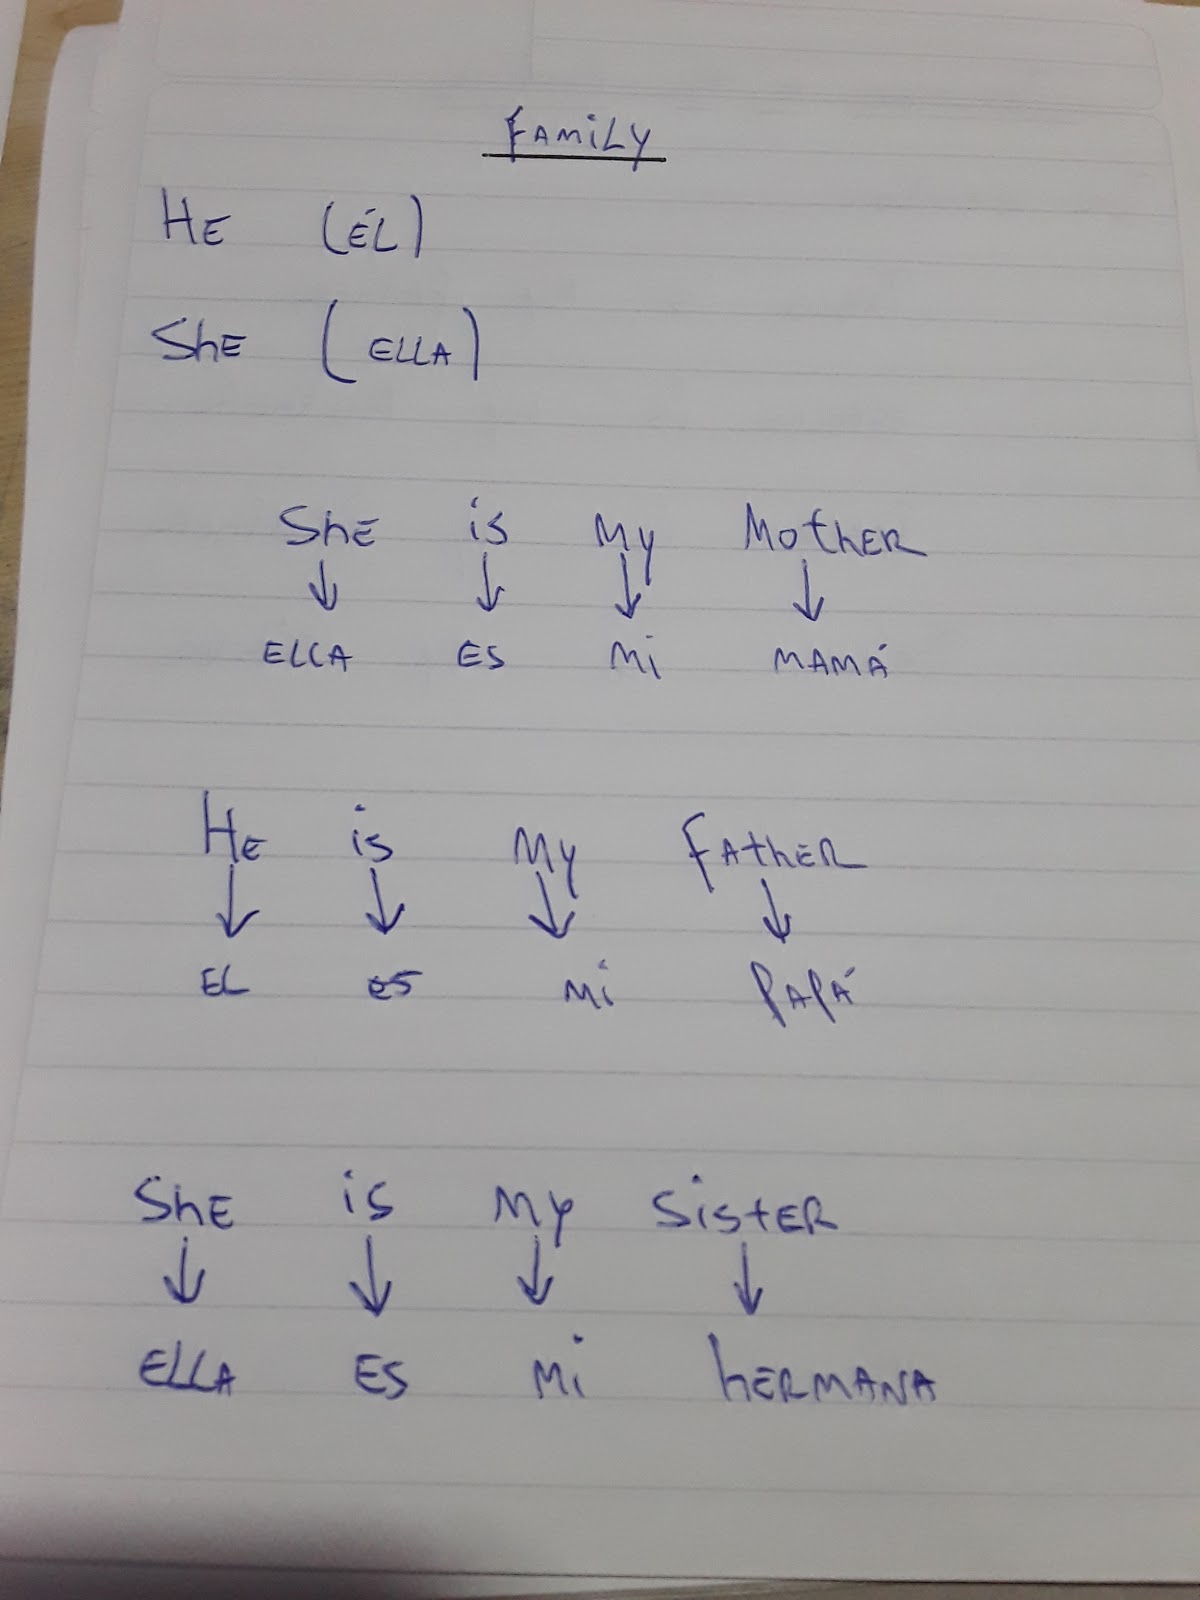 FAMiLY
HE (ÉL)
ShE (ELLA)
ShE is My MothER
ELLA ES Mi MAMÁ
HE is My FAthER
EL es Mi PAPÁ
ShE is My SistER
ELLA ES Mi hERMANA